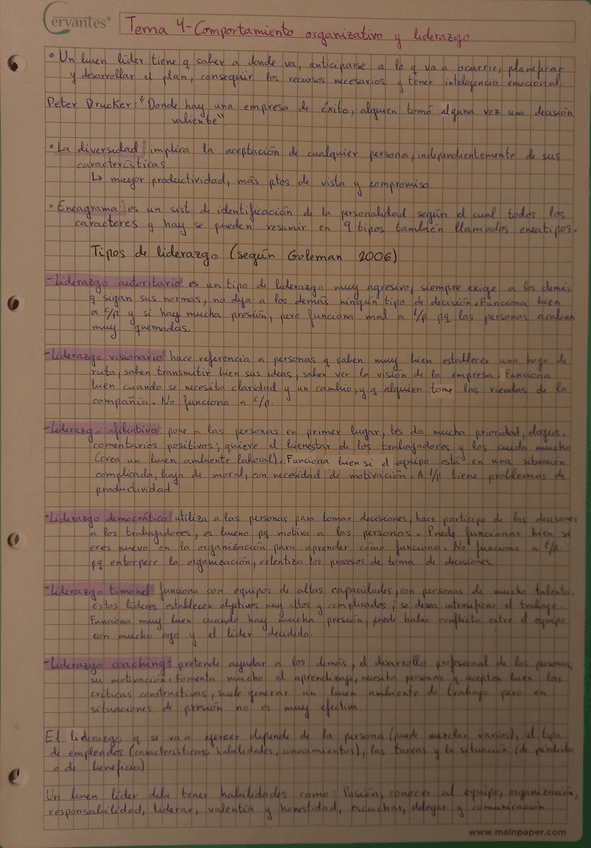 Cervantes®
Tema 4-Comportamiento organizativo y liderazgo
• Un buen líder tiene q saber a donde va, anticiparse a lo q va a ocurrir, planificar
y desarrollar el plan, conseguir los recursos necesarios y tener inteligencia emocional
Peter Drucker: "Donde hay una empresa de éxito, alguien tomó alguna vez una decisión
valiente".
• La diversidad implica la aceptación de cualquier persona, independientemente de sus
características
↳ mayor productividad, más ptos de vista y compromiso.
• Eneagrama: es un sist de identificación de la personalidad según el cual todos los
caracteres q hay se pueden resumir en 9 tipos también llamados eneatipos.
Tipos de liderazgo (según Goleman 2006)
-Liderazgo autoritario es un tipo de liderazgo muy agresivo, siempre exige a los demás
q sigan sus normas, no deja a los demás ningún tipo de decisión. Funciona bien
a c/p y si hay mucha presión, pero funciona mal a l/p pq las personas acaban
muy quemadas.
-Liderazgo visionario hace referencia a personas q saben muy bien establecer una hoja de
ruta, saben transmitir bien sus ideas, saben ver la visión de la empresa. Funciona
bien cuando se necesita claridad y un cambio, y q alguien tome las riendas de la
compañía. No funciona a c/p.
-Liderazgo afiliativo pone a las personas en primer lugar, les da mucha prioridad, elogios,
comentarios positivos; quiere el bienestar de los trabajadores y los cuida mucho
(crea un buen ambiente laboral). Funciona bien si el equipo está en una situación
complicada, baja de moral, con necesidad de motivación. A l/p tiene problemas de
productividad.
-Liderazgo democrático utiliza a las personas para tomar decisiones, hace partícipe de las decisiones
a los trabajadores, es bueno pq motiva a las personas. Puede funcionar bien si
eres nuevo en la organización para aprender cómo funciona. No funciona a c/p
pq entorpece la organización, relentiza los procesos de toma de decisiones.
-Liderazgo timonel funciona con equipos de altas capacidades, con personas de mucho talento.
Estos líderes establecen objetivos muy altos y complicados; se desea intensificar el trabajo.
Funciona muy bien cuando hay mucha presión, puede haber conflicto entre el equipo
con mucho ego y el líder decidido.
-Liderazgo coaching pretende ayudar a los demás, el desarrollo profesional de las personas,
su motivación. Fomenta mucho el aprendizaje, necesita personas q acepten bien las
críticas constructivas, suele generar un buen ambiente de trabajo pero en
situaciones de presión no es muy efectiva.
El liderazgo q se va a ejercer depende de la persona (puede mezclar varios), el tipo
de empleados (características, habilidades, conocimientos), las tareas y la situación (de pérdida
o de beneficio)
Un buen líder debe tener habilidades como: Pasión, conocer al equipo, organización,
responsabilidad, liderar, valentía y honestidad, escuchar, delegar y comunicación.
www.mainpaper.com